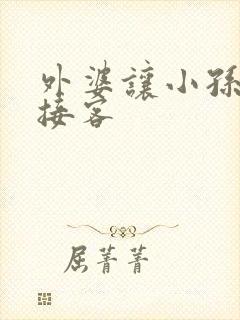 外婆讓小孫
接客
屈菁菁